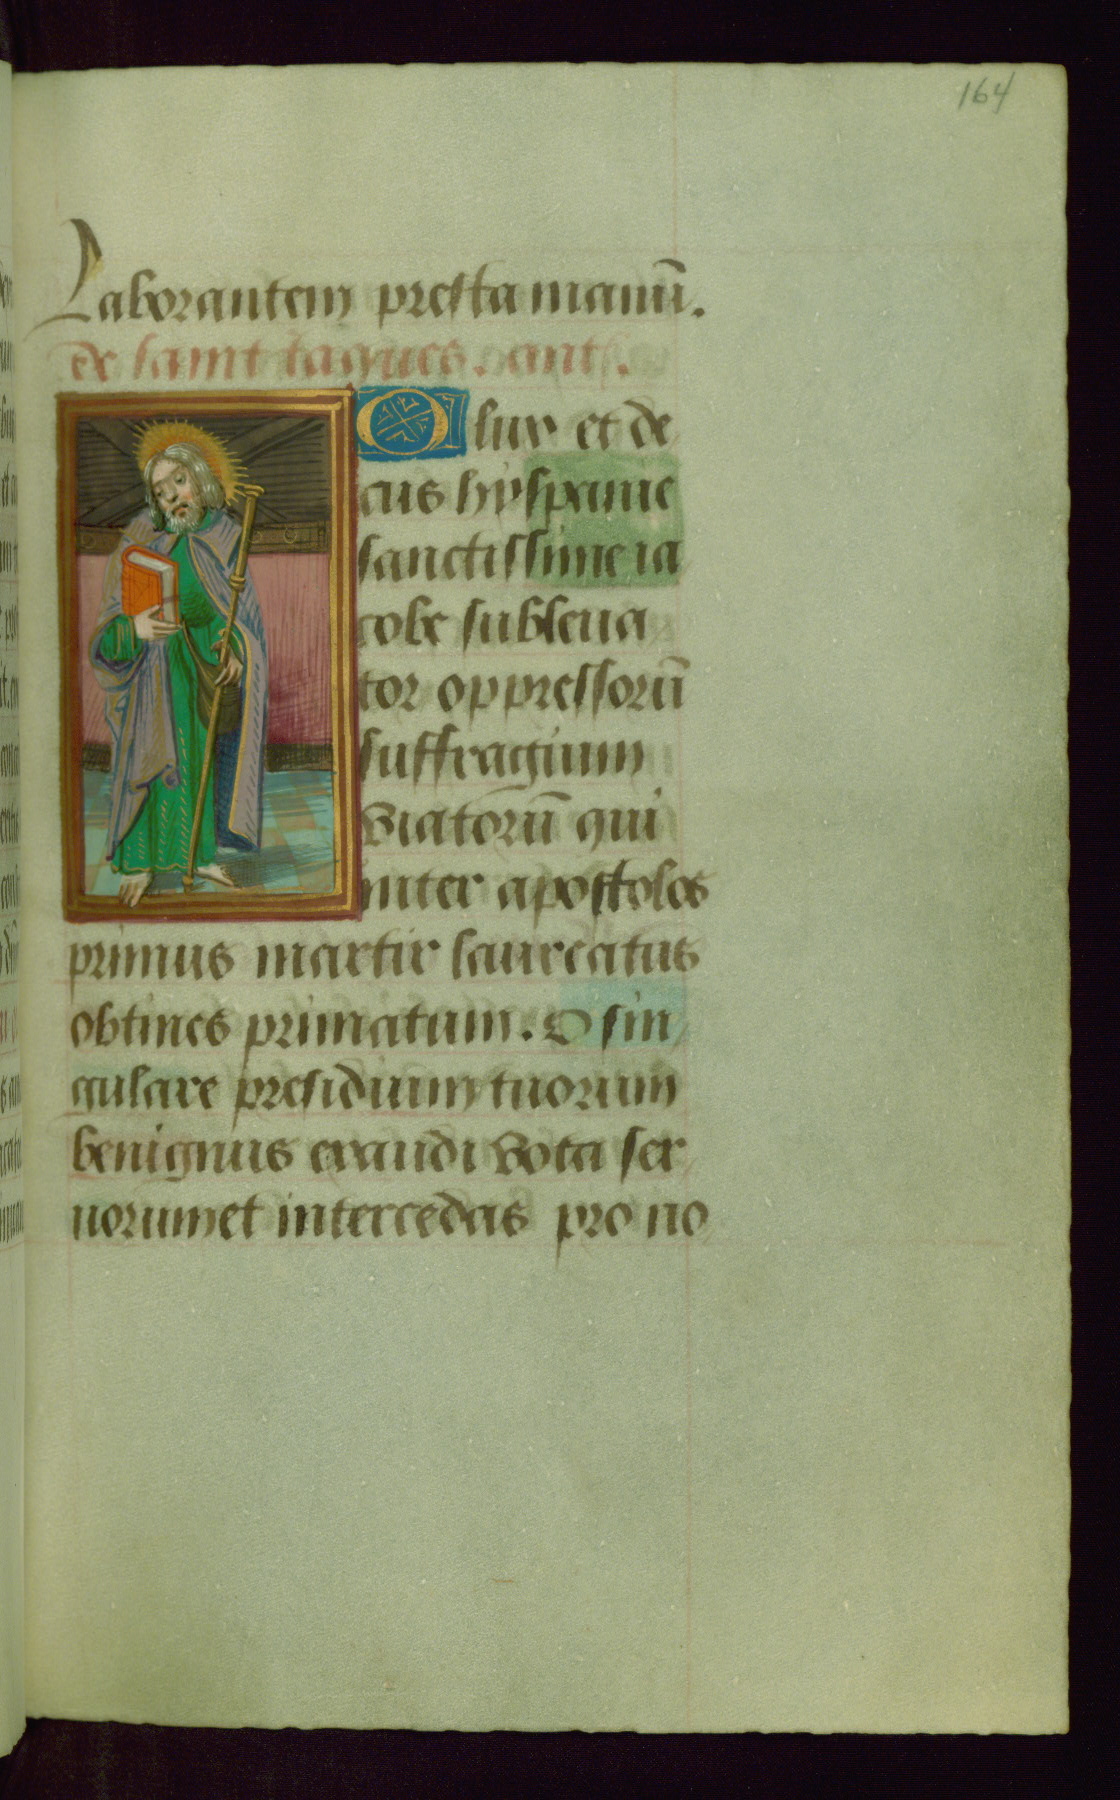 164
Laborantem presta manū.
de saint iaques. ant.
O lux et de
cus hyspanie
sanctissime ia
cobe subleua
tor oppressorū
suffragium
viatorū qui
inter apostolos
primus martir laureatus
obtines primatum. O sin
gulare presidium tuorum
benignus exaudi vota ser
uorum et intercedas pro no